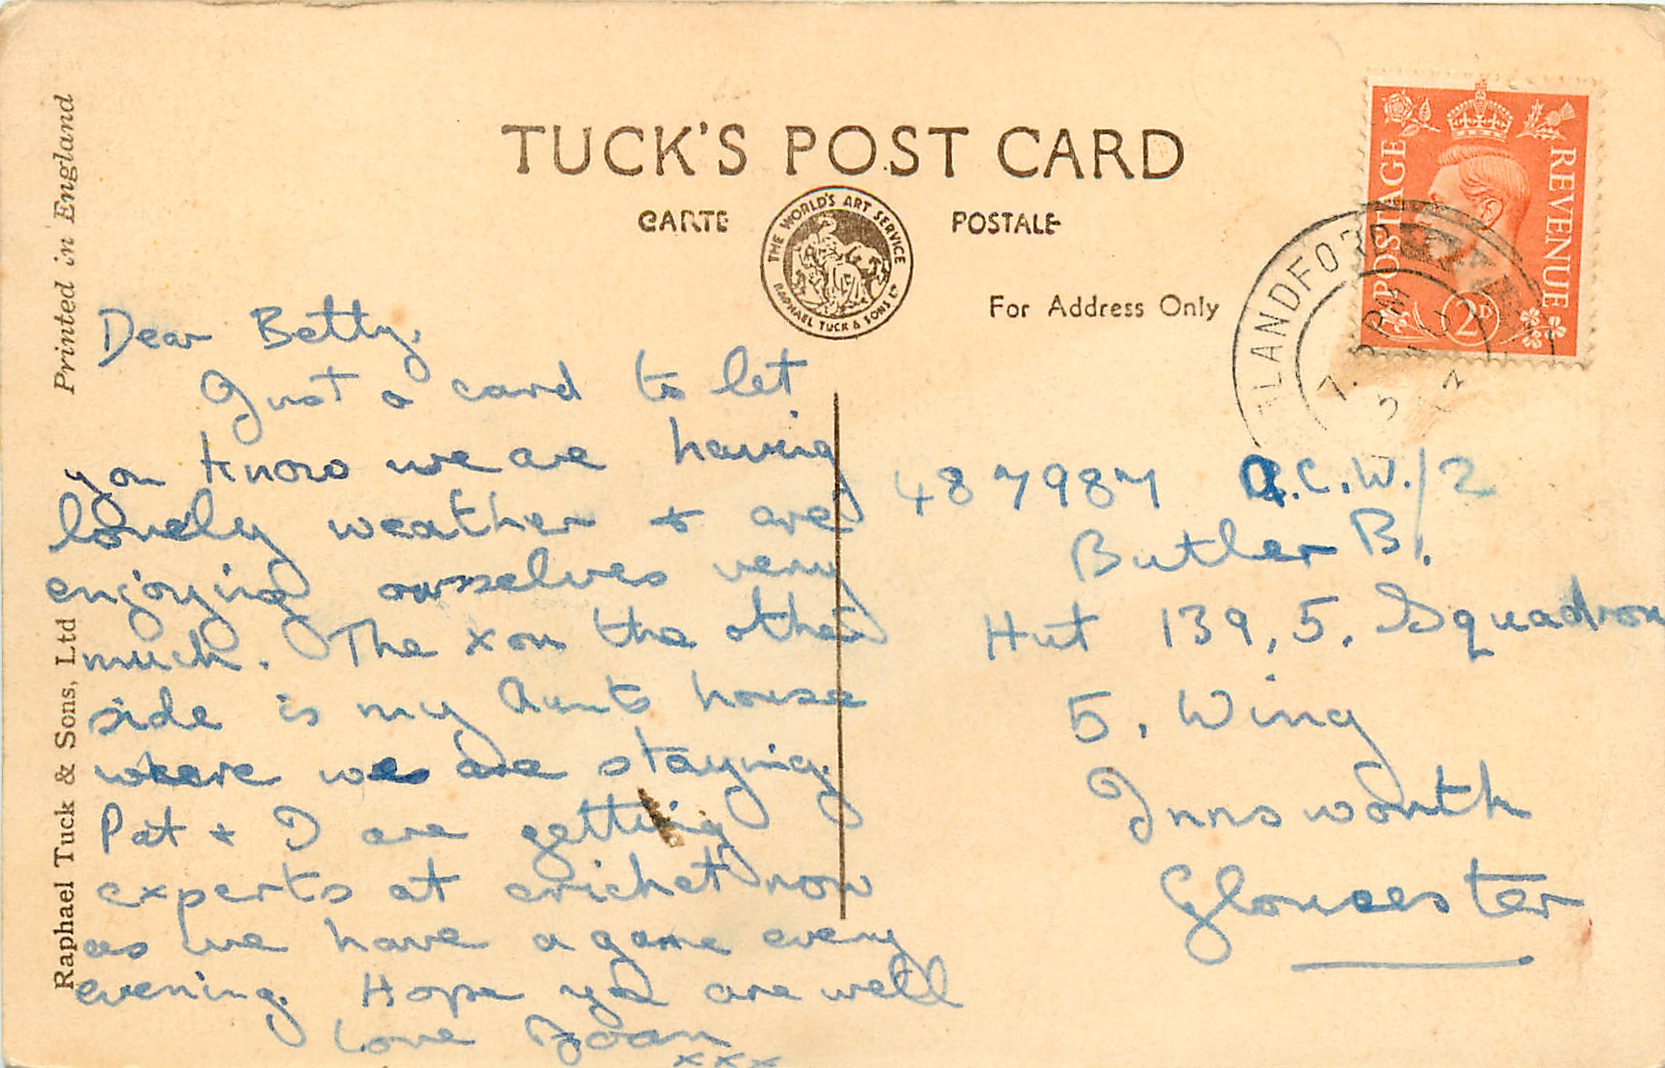 TUCK'S POST CARD
CARTE POSTALE
THE WORLD'S ART SERVICE
RAPHAEL TUCK & SONS LD
For Address Only
Printed in England
Raphael Tuck & Sons, Ltd
POSTAGE
REVENUE
2D
BLANDFORD
PM
Dear Betty,
Just a card to let
you know we are having
lovely weather + are
enjoying ourselves very
much. The x on the other
side is my Aunts house
where we are staying.
Pat + I are getting
experts at cricket now
as we have a game every
evening. Hope you are well
Love Joan
xxx
487987 A.C.W./2
Butler B.
Hut 139, 5. Squadron
5. Wing
Innsworth
Gloucester